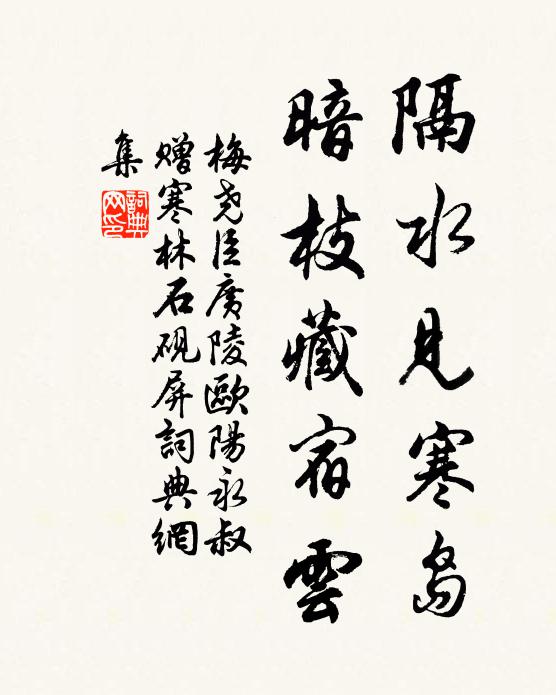 隔水見寒島
暗枝藏宿雲
梅尧臣廣陵歐陽永叔
贈寒林石硯屏詞典網
集
詞典
网印